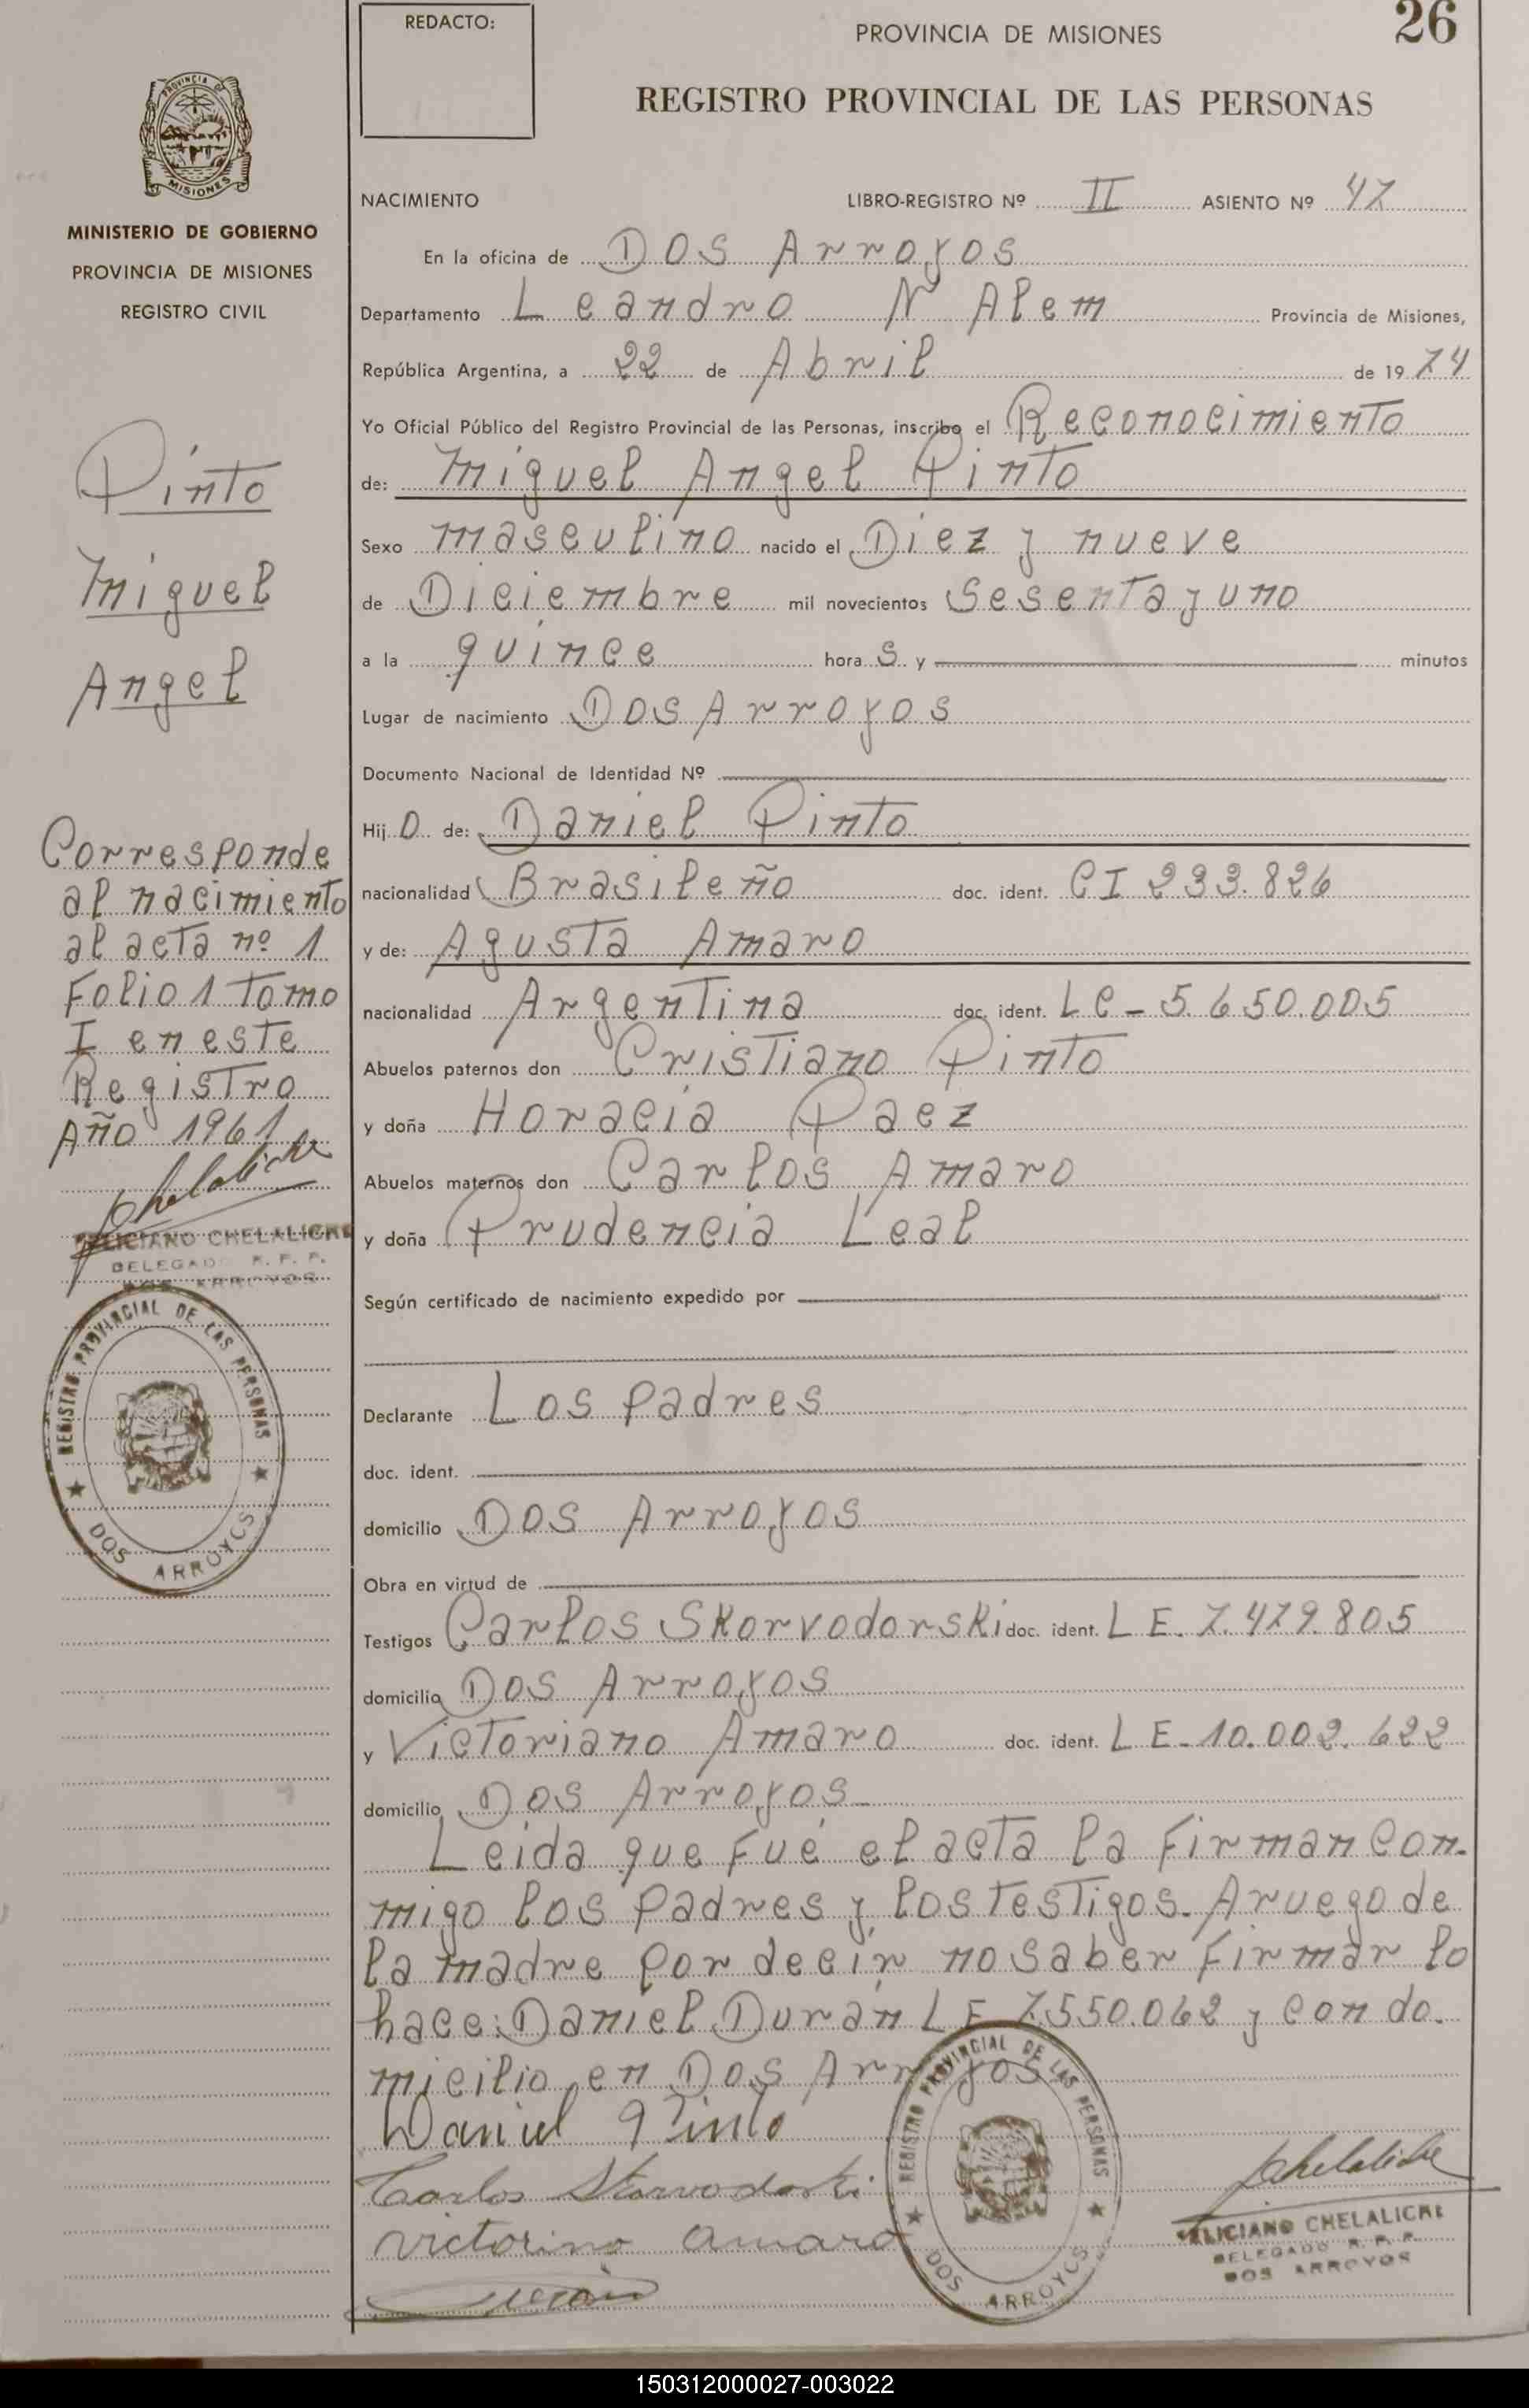 REDACTO:
PROVINCIA DE MISIONES
26
REGISTRO PROVINCIAL DE LAS PERSONAS
PROVINCIA DE
MISIONES
MINISTERIO DE GOBIERNO
PROVINCIA DE MISIONES
REGISTRO CIVIL
NACIMIENTO LIBRO-REGISTRO Nº II ASIENTO Nº 47
En la oficina de Dos Arroyos
Departamento Leandro N Alem Provincia de Misiones,
República Argentina, a 22 de Abril de 1974
Yo Oficial Público del Registro Provincial de las Personas, inscribo el Reconocimiento
de: Miguel Angel Pinto
Sexo masculino nacido el Diez y nueve
de Diciembre mil novecientos Sesenta y uno
a la quince hora s y minutos
Lugar de nacimiento Dos Arroyos
Documento Nacional de Identidad Nº
Hij o de: Daniel Pinto
nacionalidad Brasileño doc. ident. CI 233.826
y de: Agusta Amaro
nacionalidad Argentina doc. ident. LC - 5.650.005
Abuelos paternos don Cristiano Pinto
y doña Horacia Paez
Abuelos maternos don Carlos Amaro
y doña Prudencia Leal
Según certificado de nacimiento expedido por
Declarante Los padres
doc. ident.
domicilio Dos Arroyos
Obra en virtud de
Testigos Carlos Skorvodorski doc. ident. LE. 7.479.805
domicilio Dos Arroyos
y Victoriano Amaro doc. ident. LE - 10.002.622
domicilio Dos Arroyos
Leida que fué el acta la firman con-
migo los padres y los testigos. A ruego de
la madre por decir no saber firmar lo
hace: Daniel Durán LE 7.550.062 y con do-
micilio en Dos Arroyos
Daniel Pinto
Carlos Skorvodoski
victorino amaro
Durán
REGISTRO PROVINCIAL DE LAS PERSONAS
DOS ARROYOS
Chelaliche
FELICIANO CHELALICHE
DELEGADO R. P. P.
DOS ARROYOS
Pinto
Miguel
Angel
Corresponde
al nacimiento
al acta nº 1
Folio 1 tomo
I en este
Registro
Año 1961
Chelaliche
FELICIANO CHELALICHE
DELEGADO R. P. P.
DOS ARROYOS
REGISTRO PROVINCIAL DE LAS PERSONAS
DOS ARROYOS
150312000027-003022